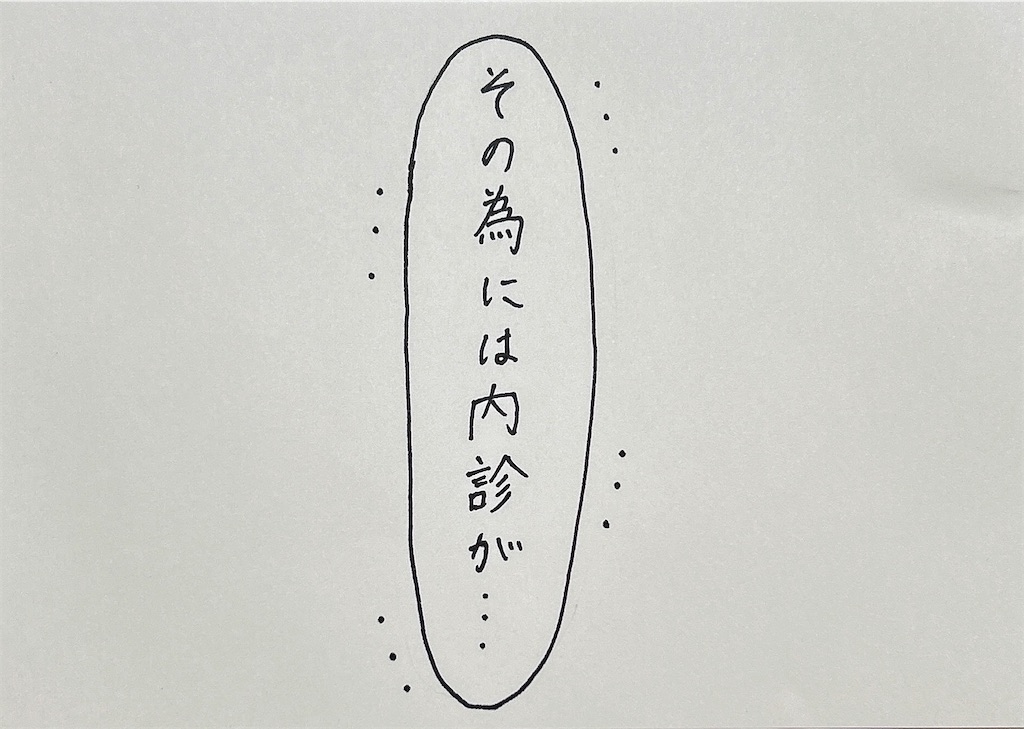 その為には内診が…